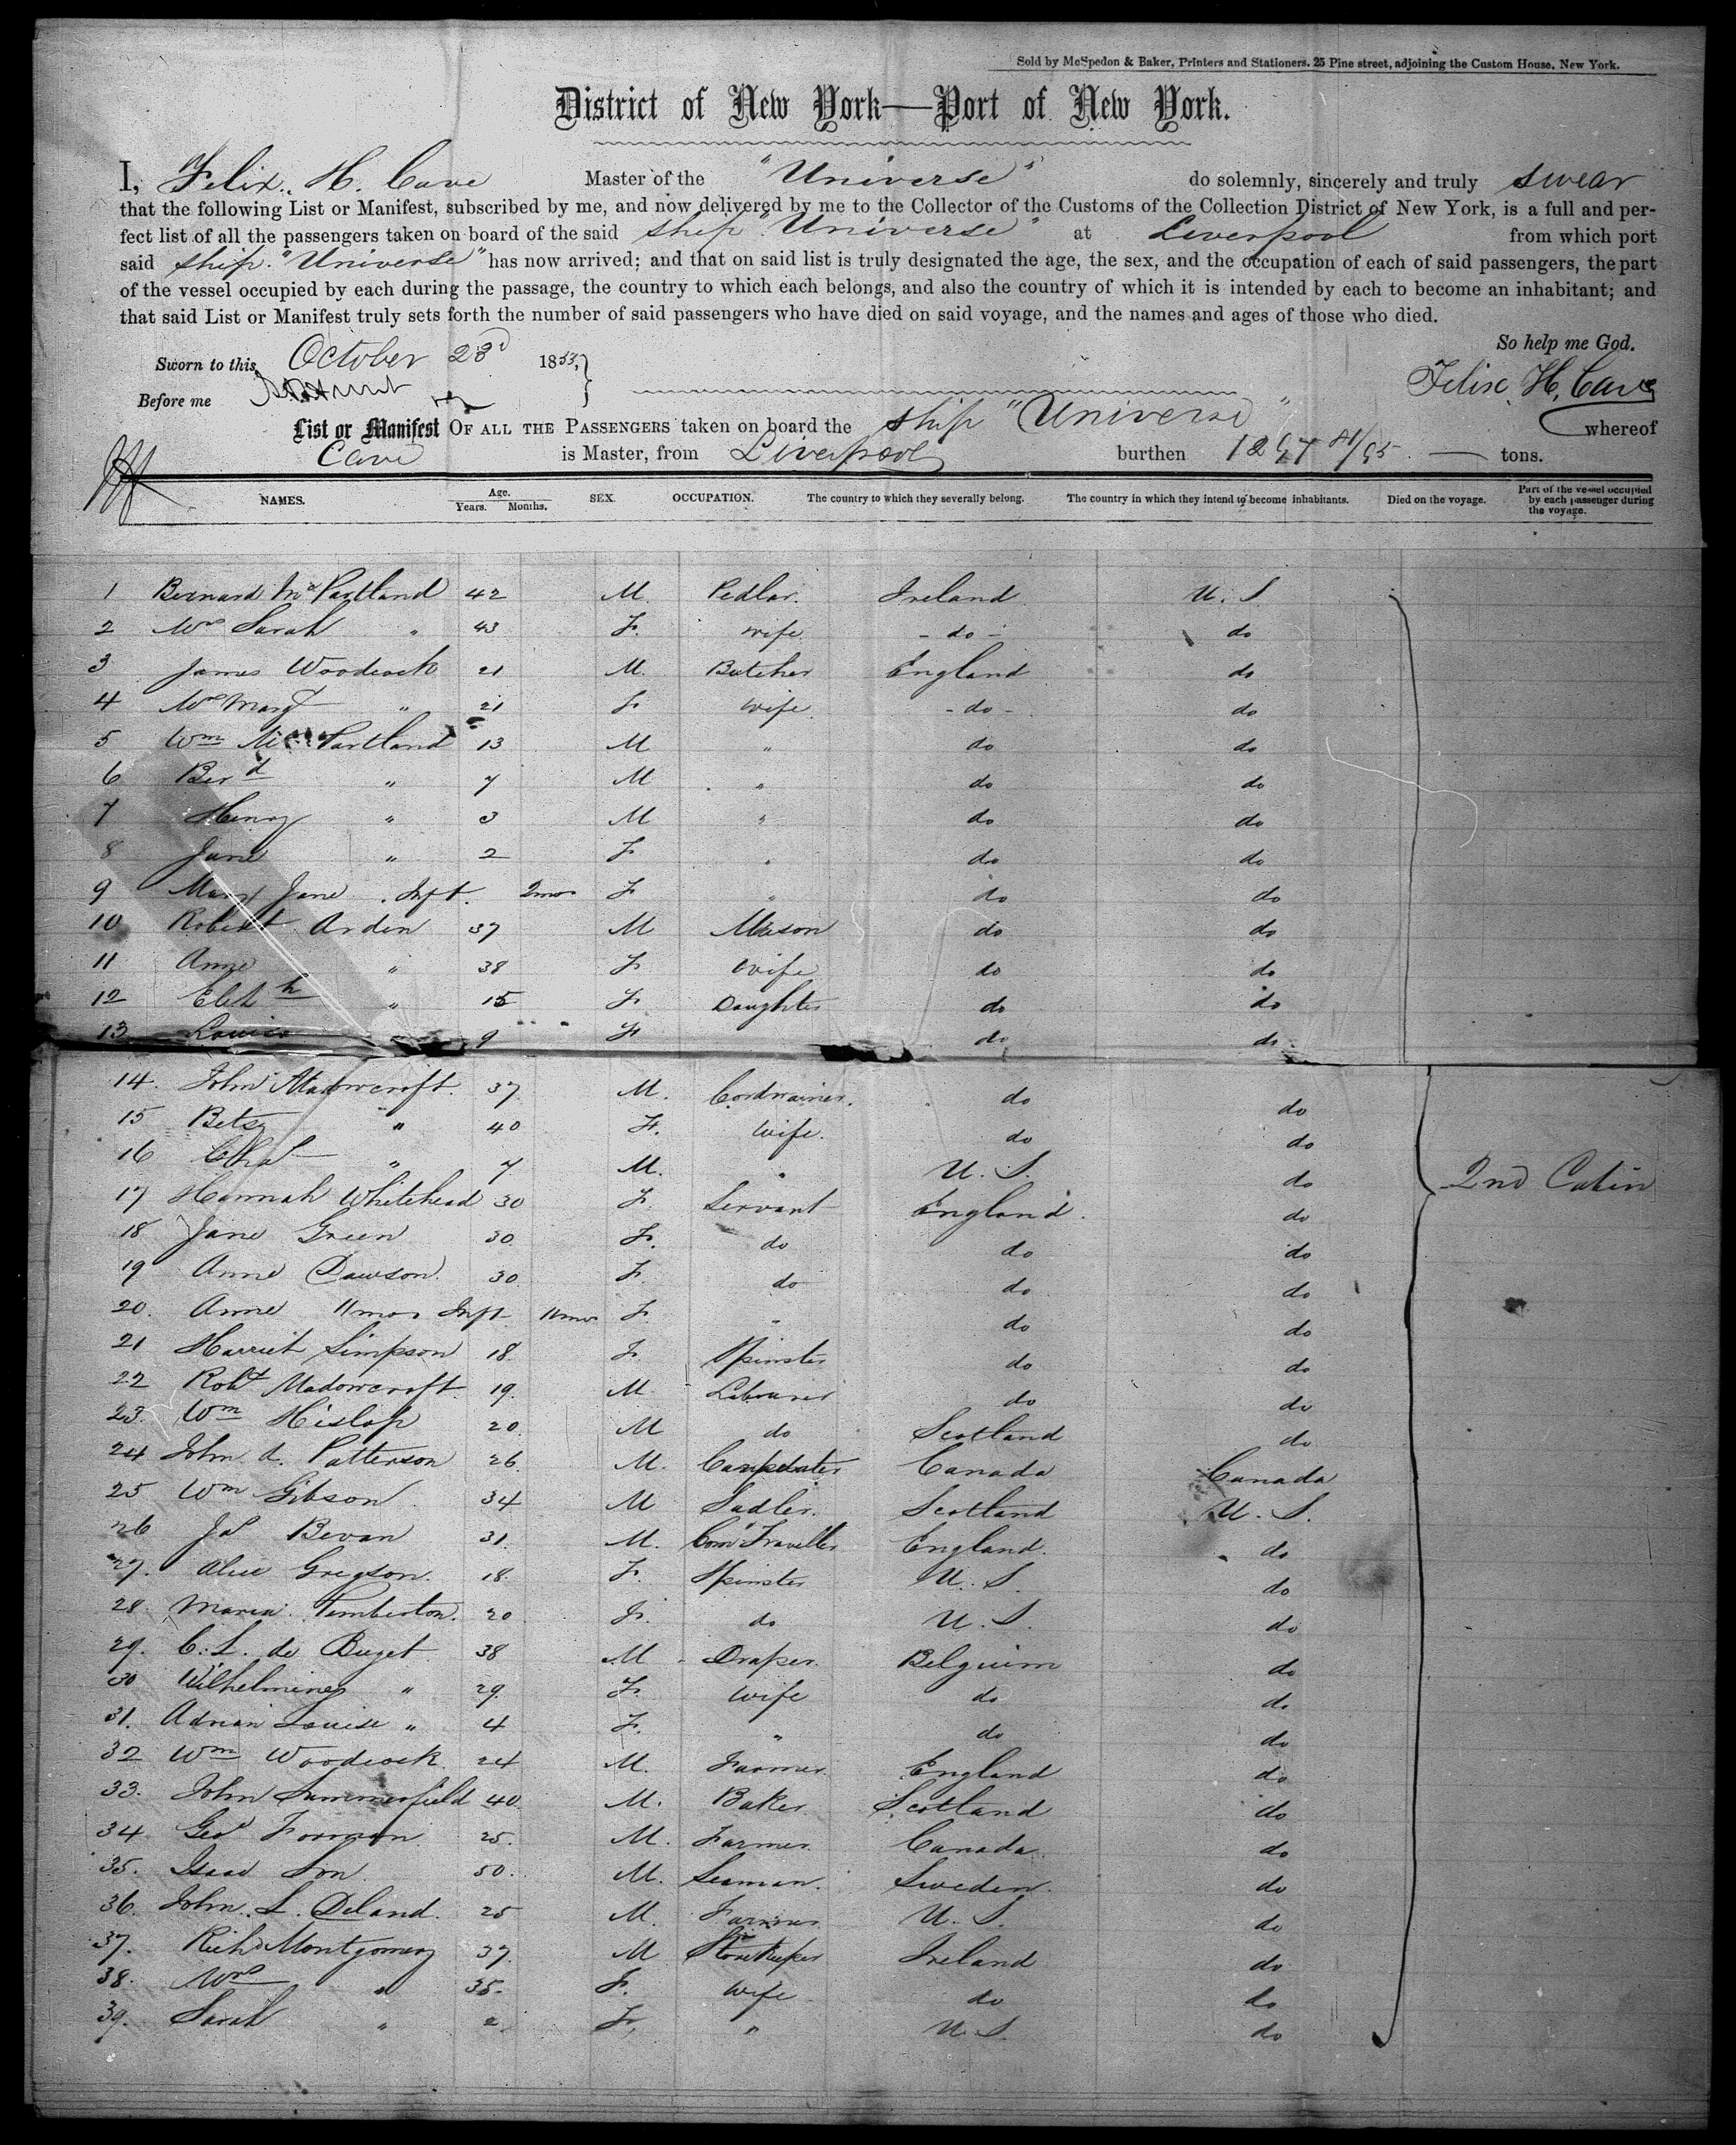 Sold by McSpedon & Baker, Printers and Stationers. 25 Pine street, adjoining the Custom House, New York.
District of New York—Port of New York.
I, Felix H. Cave Master of the "Universe" do solemnly, sincerely and truly swear
that the following List or Manifest, subscribed by me, and now delivered by me to the Collector of the Customs of the Collection District of New York, is a full and per-
fect list of all the passengers taken on board of the said ship "Universe" at Liverpool from which port
said ship "Universe" has now arrived; and that on said list is truly designated the age, the sex, and the occupation of each of said passengers, the part
of the vessel occupied by each during the passage, the country to which each belongs, and also the country of which it is intended by each to become an inhabitant; and
that said List or Manifest truly sets forth the number of said passengers who have died on said voyage, and the names and ages of those who died.
So help me God.
Sworn to this October 28d 1853,
Felix H. Cave
Before me
List or Manifest OF ALL THE PASSENGERS taken on board the ship "Universe" whereof
Cave is Master, from Liverpool burthen 1297 81/95 tons.
NAMES. Age. Years. Months. SEX. OCCUPATION. The country to which they severally belong. The country in which they intend to become inhabitants. Died on the voyage. Part of the vessel occupied by each passenger during the voyage.
1 Bernard McPartland 42 M. Pedlar. Ireland U. S
2 Mrs Sarah " 43 F. wife - do - do
3 James Woodcock 21 M. Butcher England do
4 Mrs Margt " 21 F wife - do - do
5 Wm Mc Partland 13 M " do do
6 Berd " 7 M " do do
7 Henry " 3 M " do do
8 Jane " 2 F " do do
9 Mary Jane Inft. 2mos F " do do
10 Robert Arden 37 M Mason do do
11 Anne " 38 F wife do do
12 Elizth " 15 F Daughter do do
13 Louisa 9 F do do
14. John Madowcroft. 37 M. Cordwainer. do do
15 Betsy " 40 F. wife. do do
16 Chas " 7 M. " U. S. do
17 Hannah Whitehead 30 F. Servant England. do
18 Jane Green 30. F. do do do
19 Anne Dawson. 30 F. do do do
20. Anne 11mos Inft 11mos F. " do do
21 Harriet Simpson 18. F. Spinster do do
22 Robt Madowcroft. 19. M. Labourer do do
23. Wm Hislop 20. M do Scotland do
24 John A. Patterson 26. M. Carpenter Canada Canada
25 Wm Gibson 34 M Sadler. Scotland U. S.
26 Jas Bevan 31. M. Comm Traveller England. do
27. Alice Gregson. 18. F. Spinster U. S. do
28. Maria Pemberton. 20 F. do U. S. do
29. C. L. de Buget 38 M Draper. Belgium do
30 Wilhelmine " 29. F. wife do do
31. Adrian Louise " 4 F. " do do
32 Wm Woodcock 24 M. Farmer England do
33. John Summerfield 40. M. Baker Scotland do
34. Geo Forman 25. M. Farmer. Canada. do
35. Isaac 50. M. Seaman. Sweden. do
36. John L. Deland. 25 M. Farmer U. S. do
37. Richd Montgomery 37. M Storekeeper Ireland do
38. Mrs " 35. F. wife do do
39. Sarah " 2. F. " U. S. do
2nd Cabin